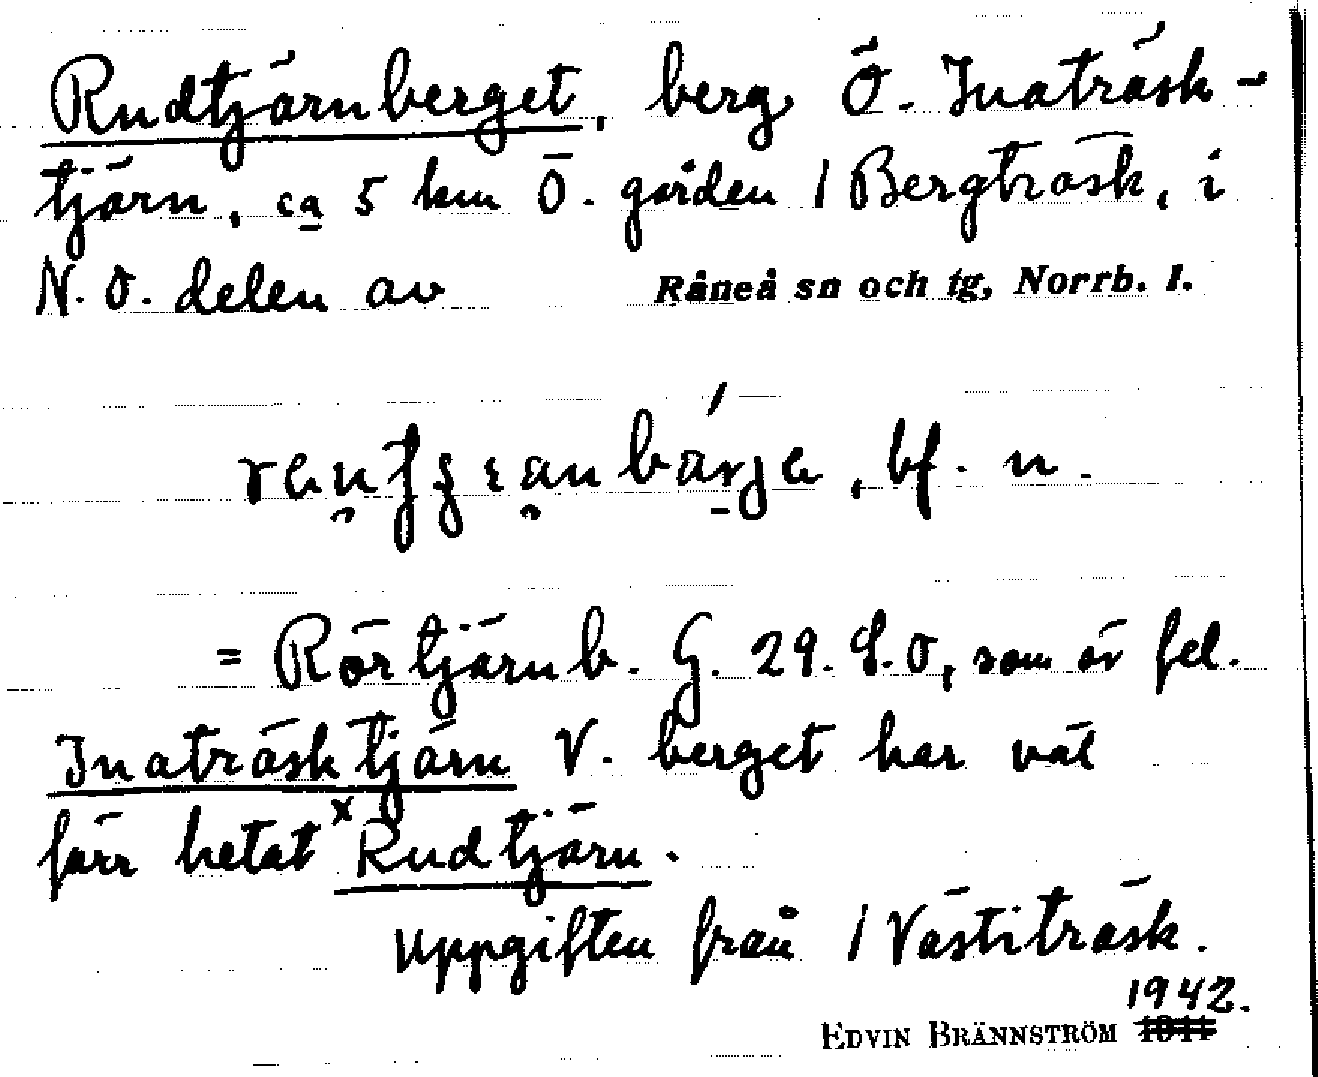 Rudtjärnberget, berg Ö. Inaträsk-
tjärn, ca 5 km Ö. gården 1 Bergträsk, i
N.O. delen av Råneå sn och tg, Norrb. l.
bf. n.
= Rörtjärnb. G. 29. S.O, som är fel.
Inaträsktjärn V. berget har väl
förr hetat ˣRudtjärn.
Uppgiften från 1 Västiträsk.
1942.
EDVIN BRÄNNSTRÖM 1941